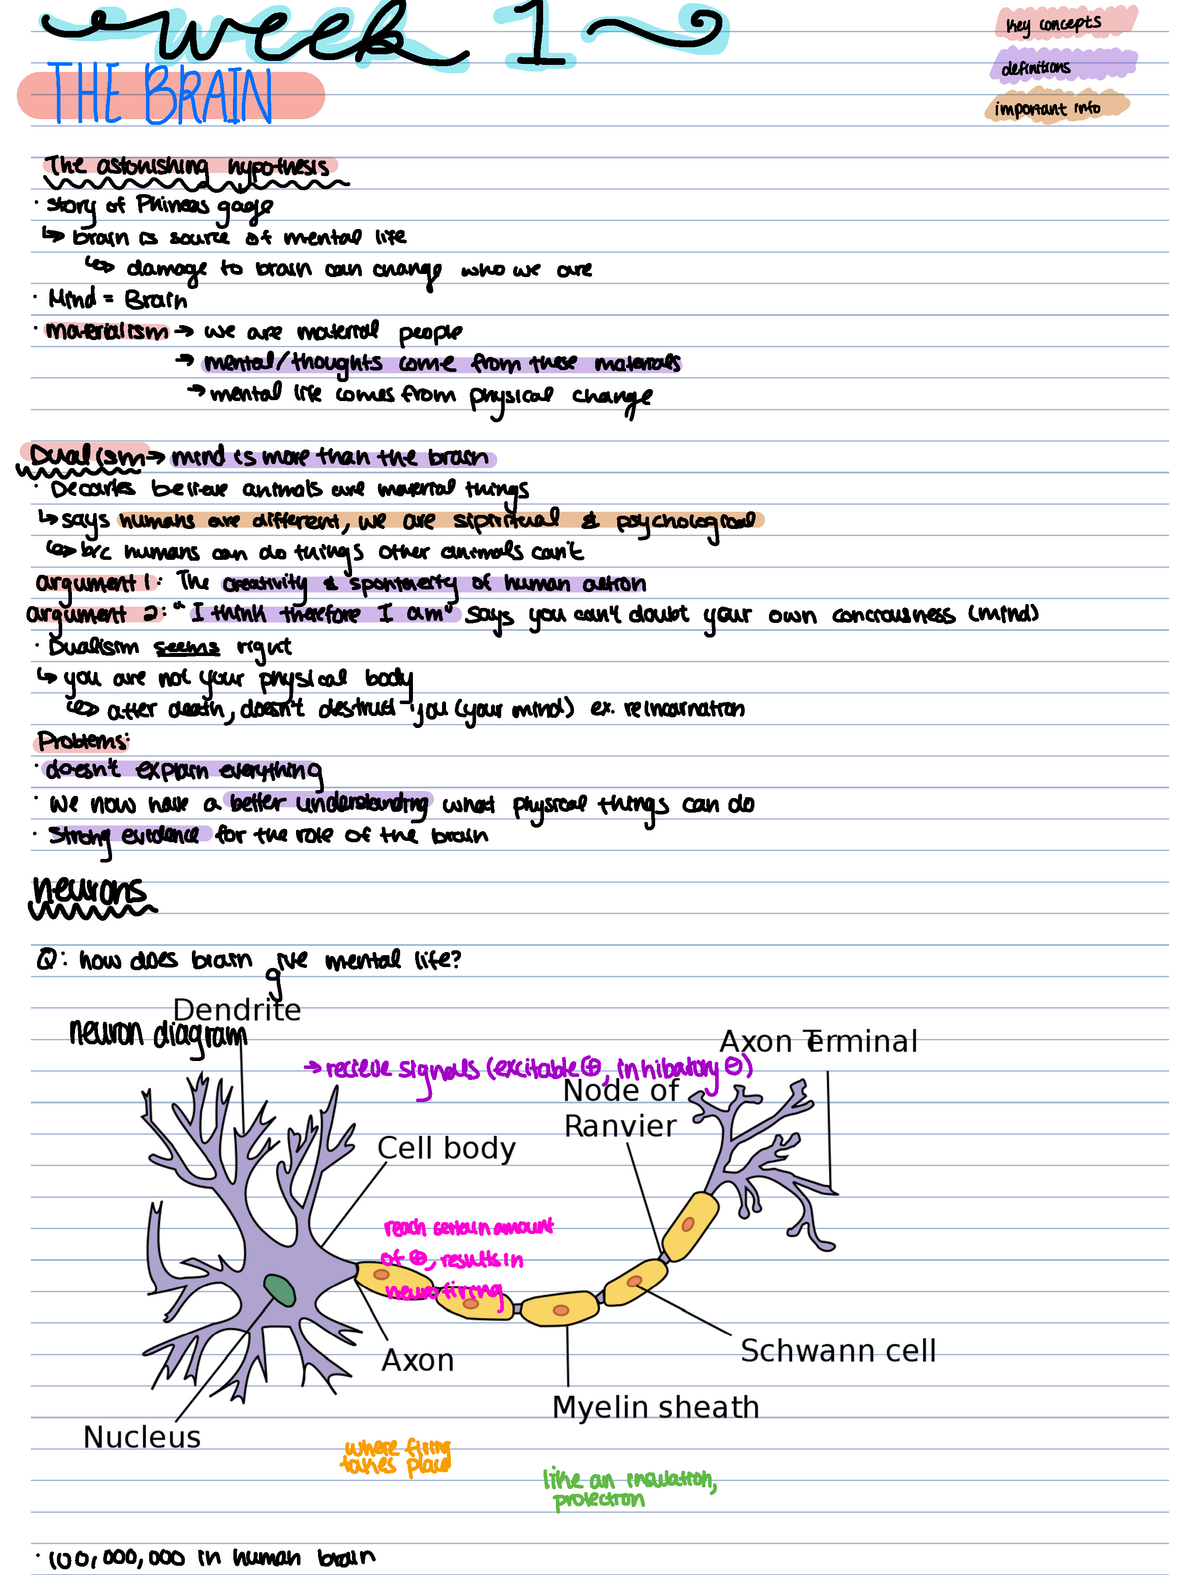 week 1
key concepts
definitions
important info
THE BRAIN
The astonishing hypothesis
· story of Phineas gage
↳ brain is source of mental life
↳ damage to brain can change who we are
· Mind = Brain
· materialism → we are material people
→ mental/thoughts come from these materials
→ mental life comes from physical change
Dualism → mind is more than the brain
· Decartes believe animals are material things
↳ says humans are different, we are sipiritual & psychological
↳ b/c humans can do things other animals can't
argument 1: The creativity & spontaneity of human action
argument 2: "I think therefore I am" says you can't doubt your own conciousness (mind)
· Dualism seems right
↳ you are not your physical body
↳ after death, doesn't destrust you (your mind) ex. reincarnation
Problems:
· doesn't explain everything
· we now have a better understanding what physical things can do
· Strong evidence for the role of the brain
neurons
Q: how does brain give mental life?
Dendrite
neuron diagram
Axon Terminal
→ recieve signals (excitable ⊕, inhibatory ⊖)
Node of
Ranvier
Cell body
reach certain amount
of ⊕, results in
neuro firing
Axon
Schwann cell
Myelin sheath
Nucleus
where firing
takes place
like an insulation,
protection
· 100,000,000 in human brain